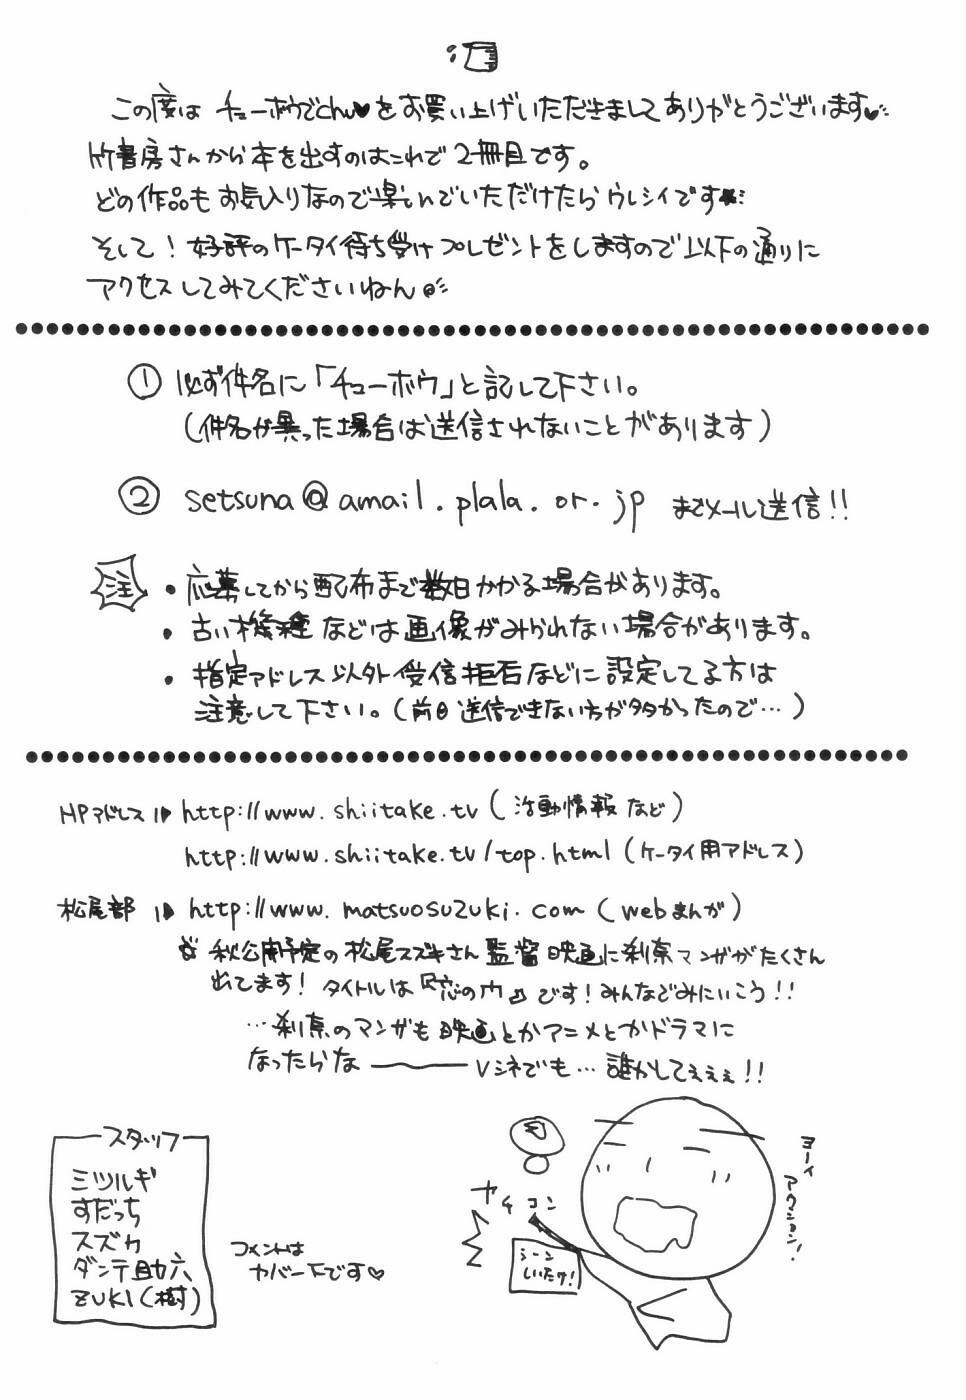 この度は チューボウでchu♥をお買い上げいただきましてありがとうございます♥
竹書房さんから本を出すのはこれで2冊目です。
どの作品もお気入りなので楽しんでいただけたらウレシイです★
そして!好評のケータイ待ち受けプレゼントをしますので以下の通りに
アクセスしてみてくださいねん
① 必ず件名に「チューボウ」と記して下さい。
(件名が異った場合は送信されないことがあります)
② setsuna@amail.plala.or.jp までメール送信!!
注 ・応募してから配布まで数日かかる場合があります。
・古い機種などは画像がみられない場合があります。
・指定アドレス以外受信拒否などに設定してる方は
注意して下さい。(前回送信できない方が多かったので…)
HPアドレス http://www.shiitake.tv (活動情報など)
http://www.shiitake.tv/top.html (ケータイ用アドレス)
松尾部 http://www.matsuosuzuki.com (webまんが)
秋公開予定の松尾スズキさん監督映画に刹奈マンガがたくさん
出てます! タイトルは『恋の門』です! みんなでみにいこう!!
…刹奈のマンガも映画とかアニメとかドラマに
なったらな――Vシネでも…誰かしてぇぇぇ!!
スタッフ
ミツルギ
すだっち
スズカ
ダンテ助六
ZUKI(樹)
コメントは
カバー下です♡
ヨーイ
アクション!
カチコン
シーン
しいたけ!